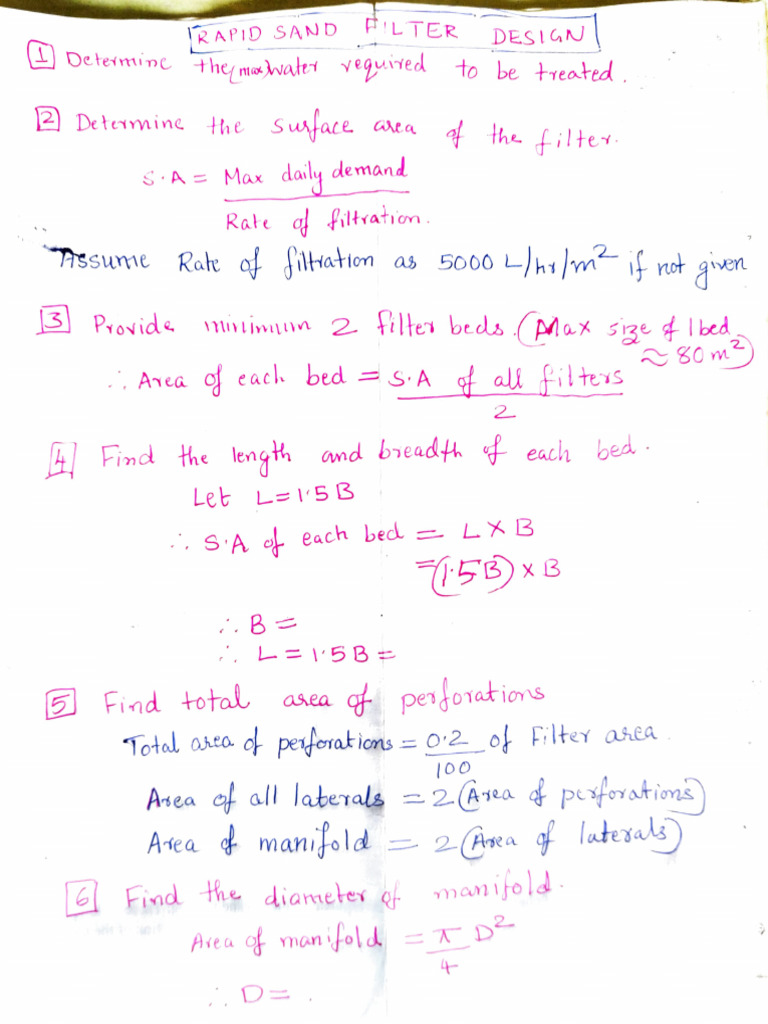 RAPID SAND FILTER DESIGN
1 Determine the (max) water required to be treated.
2 Determine the surface area of the filter.
S.A = Max daily demand
Rate of filtration.
Assume Rate of filtration as 5000 L/hr/m² if not given
3 Provide minimum 2 filter beds. (Max size of 1 bed
≈ 80 m²)
∴ Area of each bed = S.A of all filters
2
4 Find the length and breadth of each bed.
Let L = 1.5B
∴ S.A of each bed = L × B
= (1.5B) × B
∴ B =
∴ L = 1.5B =
5 Find total area of perforations
Total area of perforations = 0.2 of Filter area.
100
Area of all laterals = 2 (Area of perforations)
Area of manifold = 2 (Area of laterals)
6 Find the diameter of manifold.
Area of manifold = π D²
4
∴ D = .